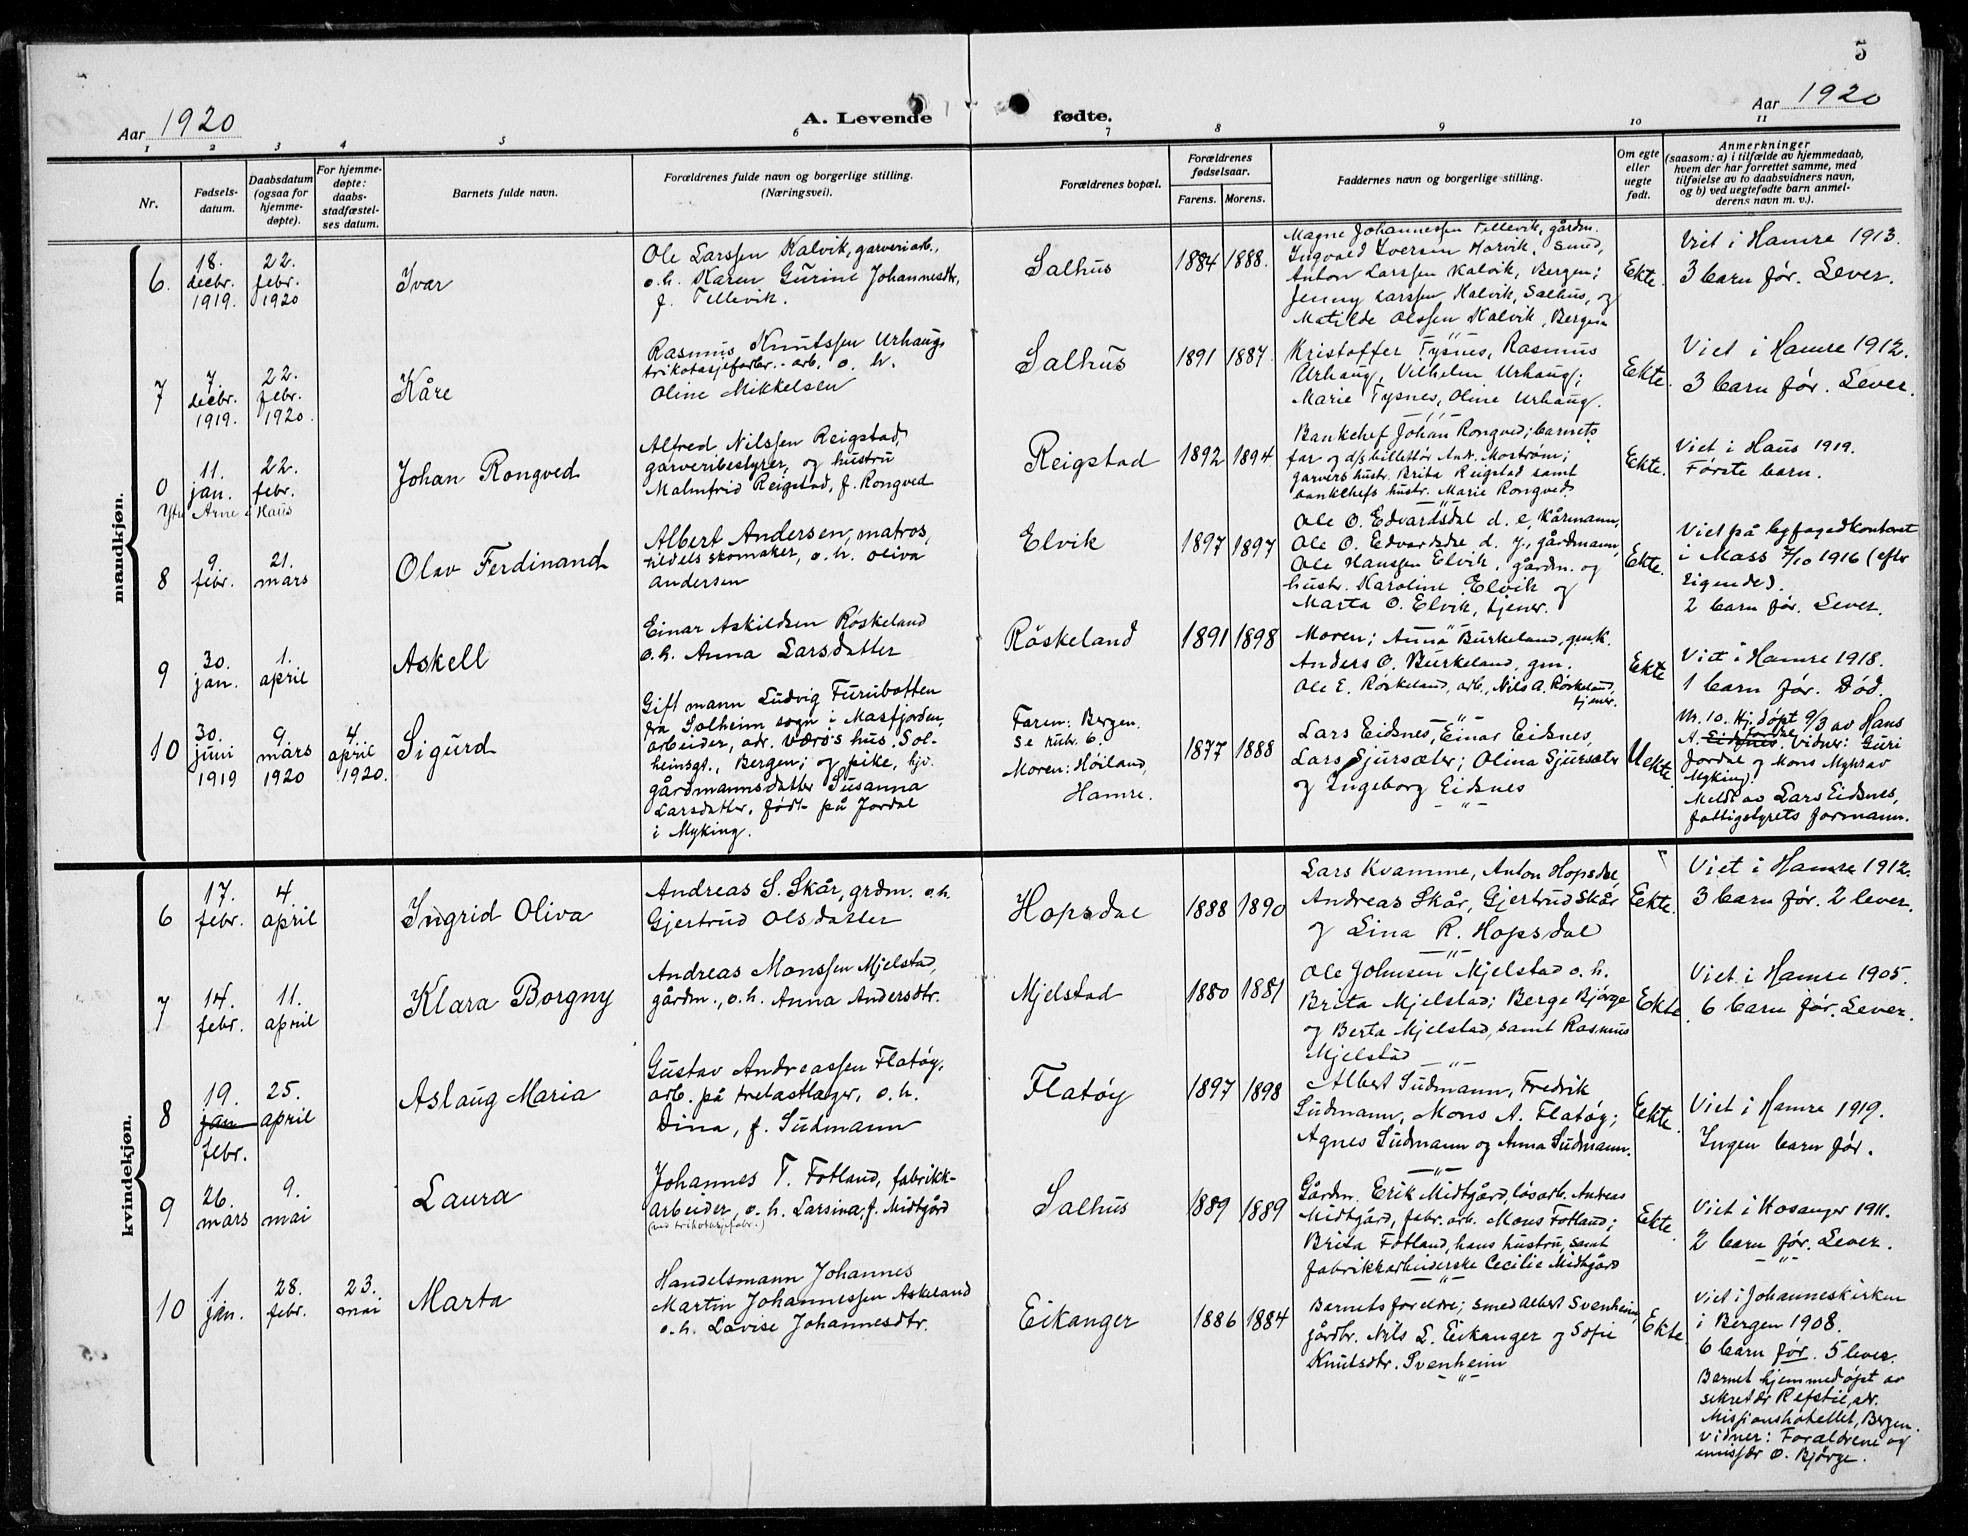 5
Aar 1920
A. Levende fødte.
Aar 1920
1 2 3 4 5 6 7 8 9 10 11
Nr.
Fødsels-
datum.
Daabsdatum
(ogsaa for
hjemme-
døpte).
For hjemme-
døpte:
daabs-
stadfæstel-
ses datum.
Barnets fulde navn.
Forældrenes fulde navn og borgerlige stilling.
(Næringsvei).
Forældrenes bopæl.
Forældrenes
fødselsaar.
Farens. Morens.
Faddernes navn og borgerlige stilling.
Om egte
eller
uegte
født.
Anmerkninger
(saasom: a) i tilfælde av hjemmedaab,
hvem der har forrettet samme, med
tilføielse av to daabsvidners navn,
og b) ved uegtefødte barn anmel-
derens navn m. v.).
mandkjøn.
6.
18.
decbr.
1919.
22.
febr.
1920
Ivar
Ole Larssen Kalvik, garveriarb.,
o.h. Karen Gurine Johannesdtr.,
f. Tellevik.
Salhus
1884 1888.
Magne Johannessen Tellevik, gårdm.
Ingvald Iversen Horvik, smed,
Anton Larssen Kalvik, Bergen;
Jenny Larssen Kalvik, Salhus, og
Matilde Olssen Kalvik, Bergen
Ekte.
Viet i Hamre 1913.
3 barn før. Lever.
7
7.
decbr.
1919.
22.
febr.
1920.
Kåre
Rasmus Knutssen Urhaug
trikotasjefabr.-arb. o. h.
Oline Mikkelsen
Salhus
1891 1887.
Kristoffer Tysnes, Rasmus
Urhaug, Vilhelm Urhaug;
Marie Tysnes, Oline Urhaug.
Ekte.
Viet i Hamre 1912.
3 barn før. Lever.
0
11.
jan.
22.
febr.
Ytre Arne i Haus
Johan Rongved
Alfred Nilssen Reigstad,
garveribestyrer, og hustru
Malmfrid Reigstad, f. Rongved
Reigstad
1892 1894.
Bankchef Johan Rongved; barnets
far og d/s billettør Andr. Mostrøm;
garvers hustr. Brita Reigstad samt
bankchefs hustr. Marie Rongved
Ekte.
Viet i Haus 1919.
Første barn.
8
9.
febr.
21.
mars
Olav Ferdinand
Albert Andersen, matros,
tildels skomaker, o. h. Oliva
Andersen
Elvik
1897 1897
Ole O. Edvardsdal d. e., kårmann,
Ole O. Edvardsdal d. y., gårdmann,
Ole Hanssen Elvik, gårdm. og
hustr. Karoline Elvik og
Marta O. Elvik, tjener.
Ekte.
Viet på byfogedkontoret
i Moss 7/10 1916 (efter
sigende).
2 barn før. Lever.
9
30.
jan.
1.
april
Askell
Einar Askildsen Røskeland
o.h. Anna Larsdatter
Røskeland
1891 1898
Moren; Anna Burkeland, gmk.
Anders O. Burkeland, gm.
Ole E. Røskeland, arb., Nils A. Røskeland,
tjener.
Ekte
Viet i Hamre 1918.
1 barn før. Død.
10
30.
juni
1919
9.
mars
1920
4
april
1920.
Sigurd
Gift mann Ludvig Furubotten
fra Solheim sogn i Masfjorden,
arbeider, adr. Værøs hus. Sol-
heimsgt., Bergen; og pike, hjv.
gårdmannsdatter Susanna
Larsdatter, født på Jordal
i Myking.
Faren: Bergen.
Se rubr. 6.
Moren: Høiland,
Hamre.
1877 1888
Lars Eidsnes, Einar Eidsnes,
Lars Sjursæter; Olina Sjursæter
og Ingeborg Eidsnes
Uekte.
Nr. 10. Hj.døpt 9/3 av Hans
A. Eidsnes. Vidner: Guri
Jordal
Jordal og Mons Myhrav
Myking.
Meldt av Lars Eidsnes,
fattigstyrets formann.
kvindekjøn.
6
17.
febr.
4.
april
Ingrid Oliva
Andreas S. Skår, grdm. o.h.
Gjertrud Olsdatter
Hopsdal
1888 1890
Lars Kvamme, Anton Hopsdal,
Andreas Skår, Gjertrud Skår
og Lina R. Hopsdal
Eekte.
Viet i Hamre 1912.
3 barn før. 2 lever.
7
14.
febr.
11.
april
Klara Borgny
Andreas Monssen Mjelstad,
gårdm., o.h. Anna Andersdtr.
Mjelstad
1880 1881
Ole Johnsen Mjelstad o.h.
Brita Mjelstad; Berge Bjørge
og Berta Mjelstad, samt Rasmus
Mjelstad
Eekte.
Viet i Hamre 1905.
6 barn før. Lever.
8
19.
jan
febr.
25.
april
Aslaug Maria
Gustav Andreassen Flatøy,
arb. på trelastlager, o. h.
Dina, f. Sudmann
Flatøy
1897 1898
Albert Sudmann, Fredrik
Sudmann, Mons A. Flatøy;
Agnes Sudmann og Anna Sudmann.
Eekte.
Viet i Hamre 1919.
Ingen barn før.
9
26.
mars
9.
mai
Laura
Johannes T. Fotland, fabrikk-
arbeider, o. h. Larsina, f. Midtgård
(ved trikotasjefabr.)
Salhus
1889 1889
Gårdm. Erik Midtgård, løsarb. Andreas
Midtgård, fabr. arb. Mons Fotland;
Brita Fotland, hans hustru, samt
fabrikkarbeiderske Cecilie Midtgård
Eekte.
Viet i Hosanger 1911.
2 barn før. Lever.
10
1.
jan.
28.
febr.
23.
mai
Marta
Handelsmann Johannes
Martin Johannessen Askeland
o.h. Lovise Johannesdtr.
Eikanger
1886 1884
Barnets foreldre; smed Albert Svenheim,
gårdbr. Nils L. Eikanger og Sofie
Knutsdtr. Svenheim
Ekte.
Viet i Johanneskirken
i Bergen 1908.
6 barn før. 5 lever.
Barnet hjemmedøpt av
sekretær Refstie, adr.
Misjonshotellet, Bergen.
Vidner: Forældrene og
emissær O. Bjørge.